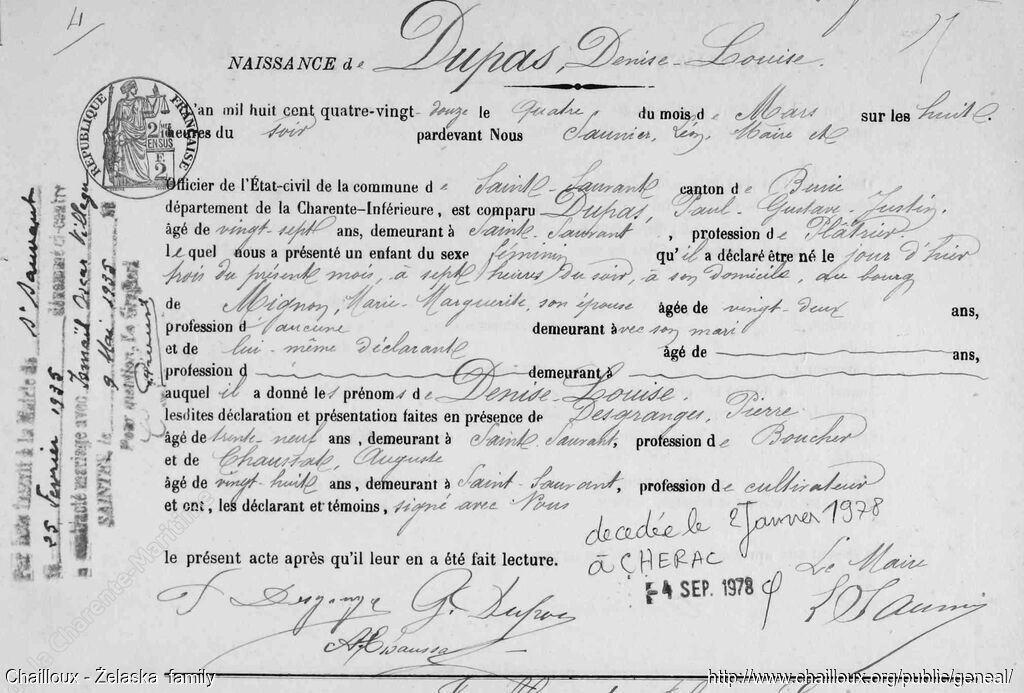 4
NAISSANCE de Dupas, Denise-Louise.
L'an mil huit cent quatre-vingt-douze le quatre du mois de Mars sur les huit
heures du soir pardevant Nous Saunier, Léon, Maire et
Officier de l'État-civil de la commune de Saint-Sauvant canton de Burie
département de la Charente-Inférieure, est comparu Dupas, Paul-Gustave-Justin,
âgé de vingt-sept ans, demeurant à Saint-Sauvant, profession de Plâtrier
Lequel nous a présenté un enfant du sexe féminin qu'il a déclaré être né le jour d'hier
trois du présent mois, à sept heures du soir, à son domicile, au bourg
de Mignon, Marie-Marguerite, son épouse âgée de vingt-deux ans,
profession d'aucune demeurant avec son mari
et de lui-même déclarant âgé de ans,
profession d demeurant à
auquel il a donné les prénoms de Denise-Louise.
lesdites déclaration et présentation faites en présence de Desgranges, Pierre
âgé de trente-neuf ans, demeurant à Saint-Sauvant, profession de Boucher
et de Chaussat, Auguste
âgé de vingt-huit ans, demeurant à Saint-Sauvant, profession de cultivateur
et ont, les déclarant et témoins, signé avec Nous
le présent acte après qu'il leur en a été fait lecture.
decedée le 2 Janvier 1978
à CHERAC
4 SEP. 1978
Le Maire
G. Dupas
RÉPUBLIQUE FRANÇAISE
2
Par acte inscrit à la Mairie de St Sauvant
25 Février 1935
a contracté mariage avec Ismaël Oscar
SAINTES, le 9 Mai 1935
Pour mention, Le Greffier
la Charente-Maritime
Chailloux - Żelaska family
http://www.chailloux.org/public/geneal/